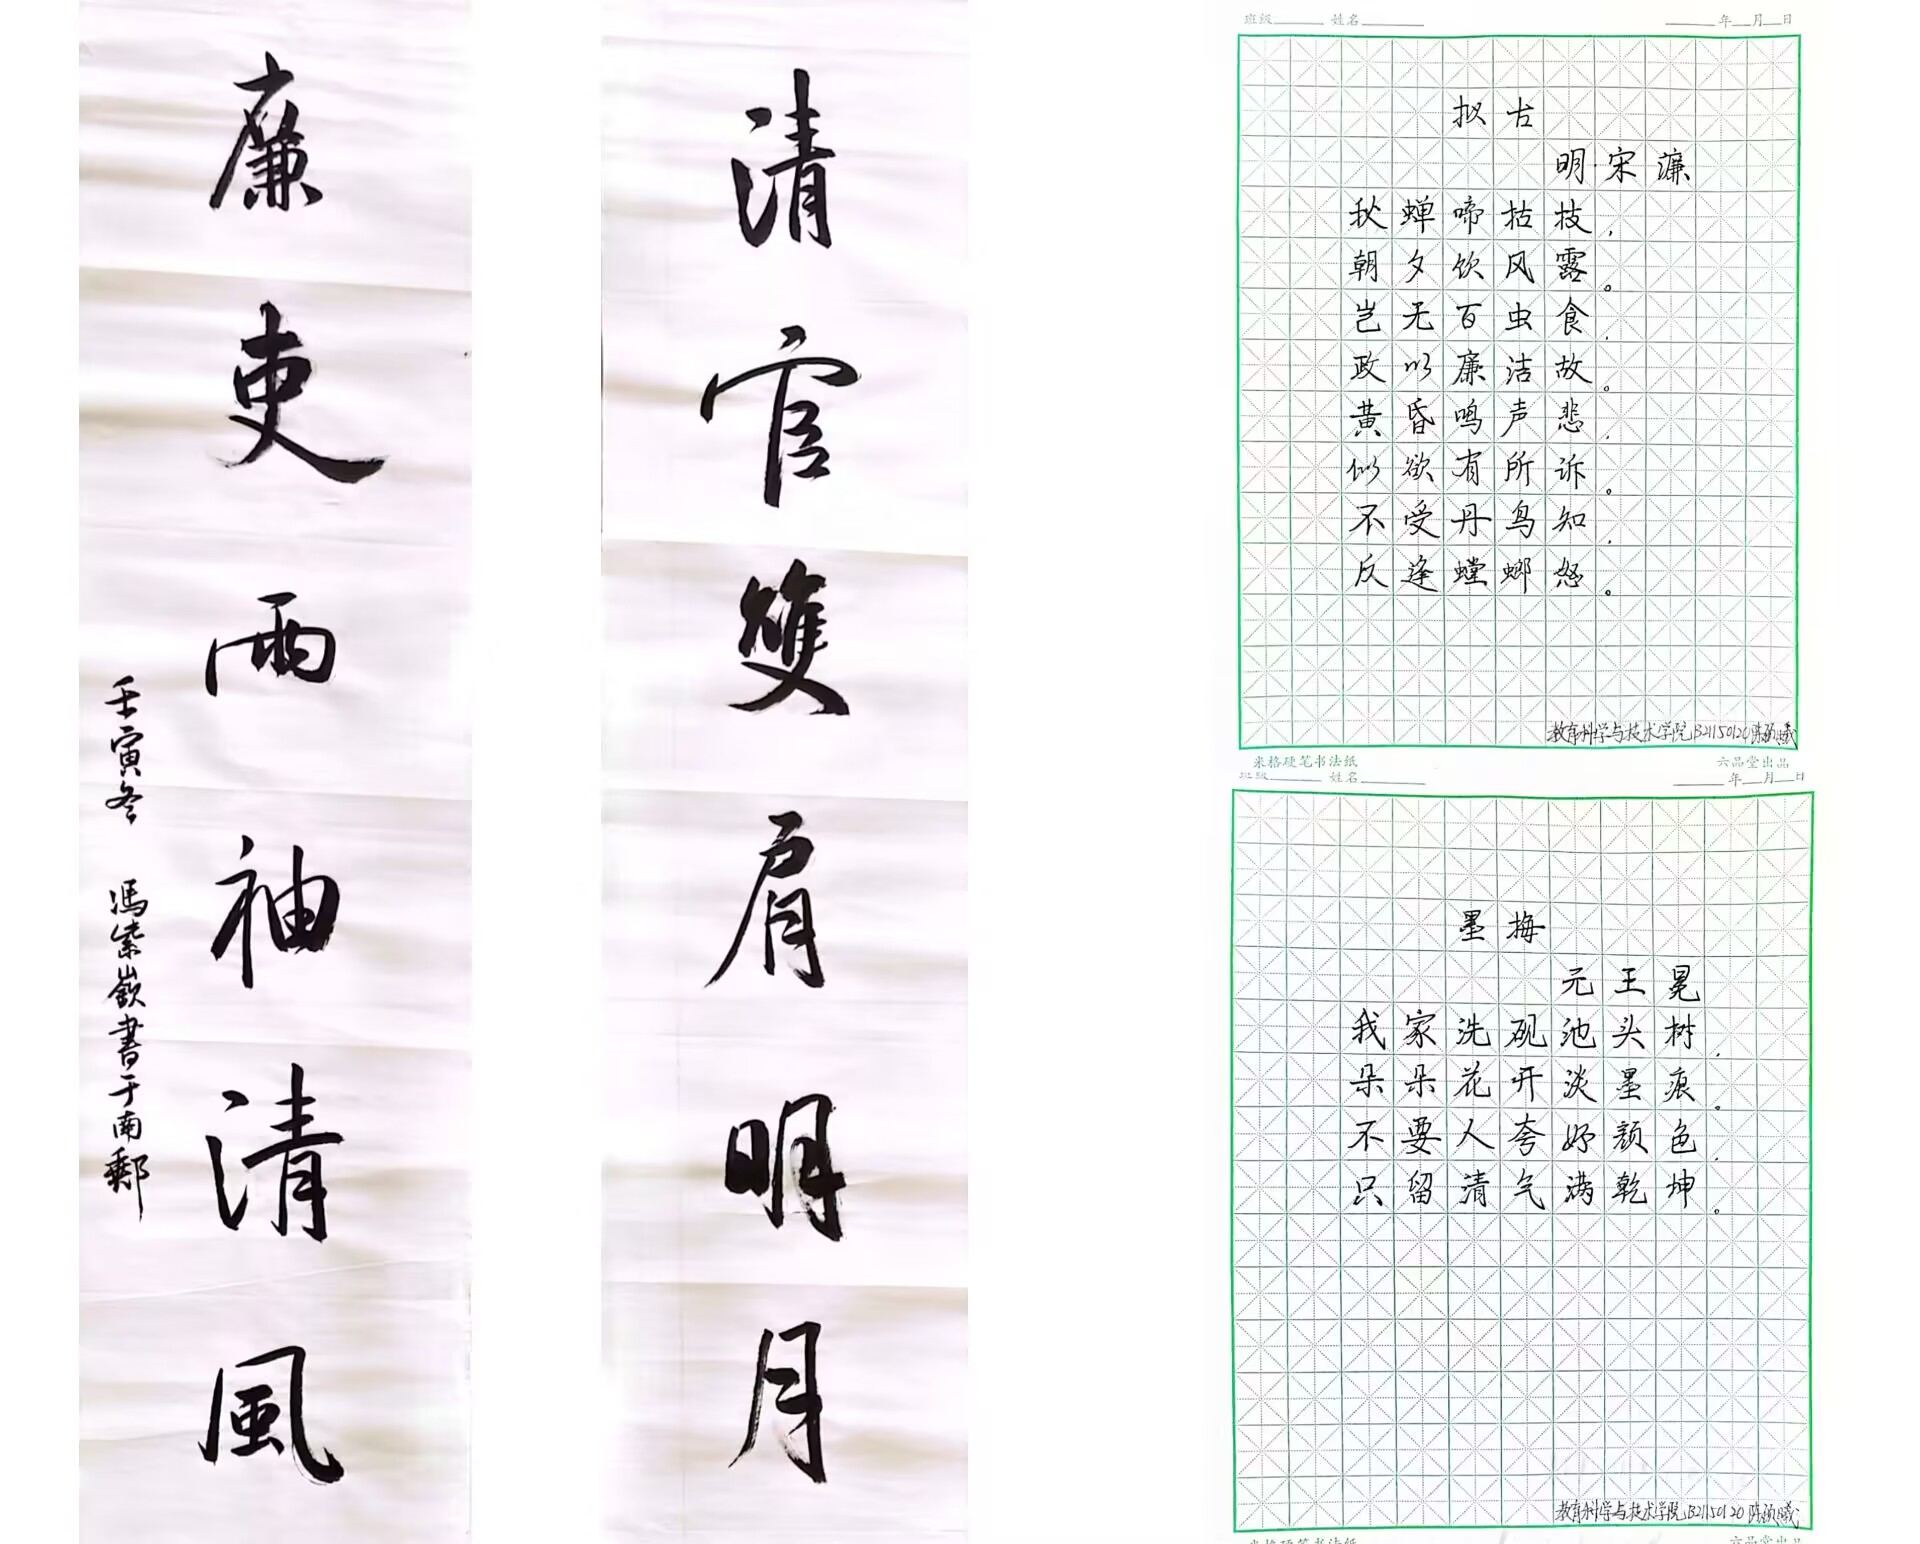 清官雙肩明月
廉吏兩袖清風
壬寅冬 馮紫嶔書于南郵
班级 姓名 年 月 日
拟古
明·宋濂
秋蝉啼枯枝,
朝夕饮风露。
岂无百虫食,
政以廉洁故。
黄昏鸣声悲,
似欲有所诉。
不受丹鸟知,
反逢螳螂怒。
教育科学与技术学院B21150120陈颖曦
米格硬笔书法纸 六品堂出品
班级 姓名 年 月 日
墨梅
元 王冕
我家洗砚池头树,
朵朵花开淡墨痕。
不要人夸好颜色,
只留清气满乾坤。
教育科学与技术学院B21150120陈颖曦
米格硬笔书法纸 六品堂出品